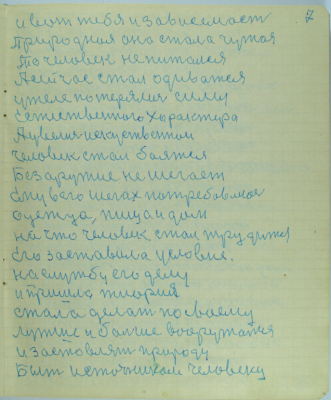 7
и вот тебя и зависемаст
природная она стала чужая
То человек не питался
А сейчас стал одиватся
уже потерялия силы
Естественного характера
А увелия искуственом
человек стал боятся
Без аружие не шегает
ему всего шегах потребовалось
одежда, пища и дом
на что человек стал трудится
Его заставила условие.
на службу его делу
и пришла теория
стала делат по своему
лутше и болше вооружатся
и заставлят природу
Быт источником человеку